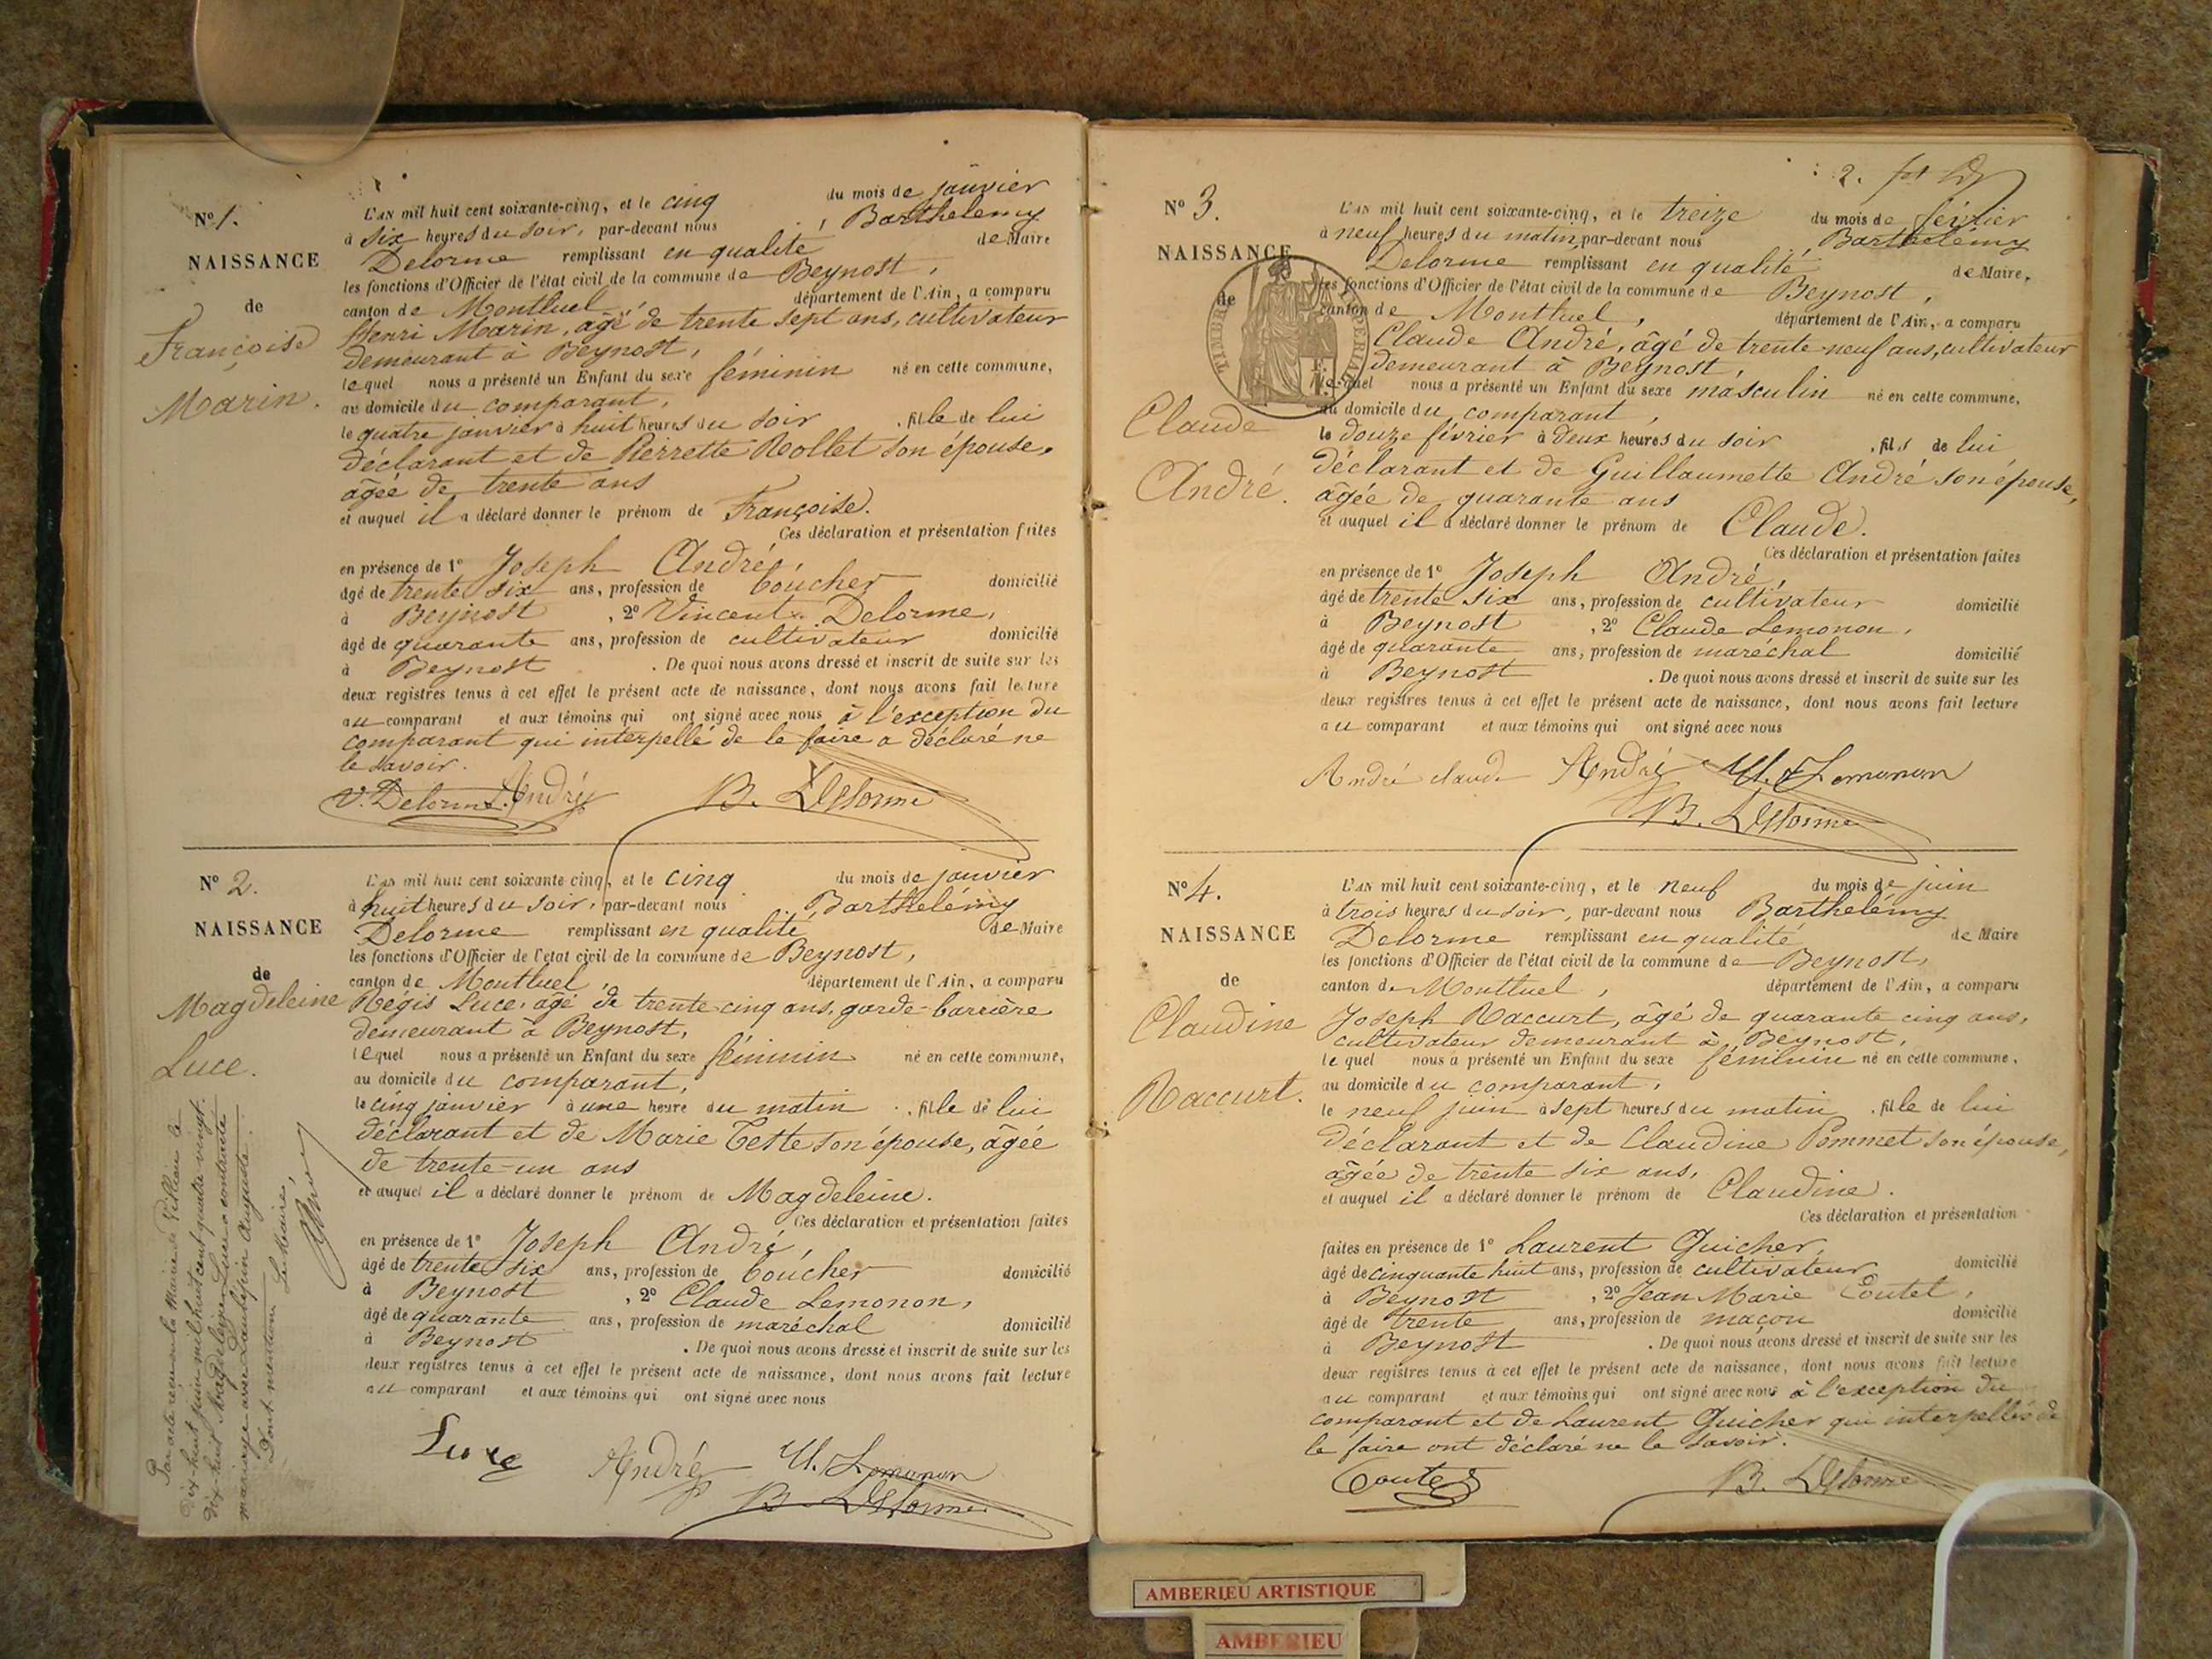 N° 1.
NAISSANCE
de
Françoise
Marin.
L'AN mil huit cent soixante-cinq, et le cinq du mois de janvier
à six heures du soir, par-devant nous Barthelémy
Delorme remplissant en qualité de Maire
les fonctions d'Officier de l'état civil de la commune de Beynost,
canton de Montluel, département de l'Ain, a comparu
Henri Marin, âgé de trente sept ans, cultivateur
demeurant à Beynost,
lequel nous a présenté un Enfant du sexe féminin né en cette commune,
au domicile du comparant,
le quatre janvier à huit heures du soir, fille de lui
déclarant et de Pierrette Rollet son épouse,
âgée de trente ans
et auquel il a déclaré donner le prénom de Françoise.
Ces déclaration et présentation faites
en présence de 1° Joseph André,
âgé de trente six ans, profession de boucher domicilié
à Beynost, 2° Vincent Delorme,
âgé de quarante ans, profession de cultivateur domicilié
à Beynost. De quoi nous avons dressé et inscrit de suite sur les
deux registres tenus à cet effet le présent acte de naissance, dont nous avons fait lecture
au comparant et aux témoins qui ont signé avec nous à l'exception du
comparant qui interpellé de le faire a déclaré ne
le savoir.
V. Delorme André B. Delorme
N° 2.
NAISSANCE
de
Magdeleine
Luce.
L'AN mil huit cent soixante-cinq, et le cinq du mois de janvier
à huit heures du soir, par-devant nous Barthelémy
Delorme remplissant en qualité de Maire
les fonctions d'Officier de l'état civil de la commune de Beynost,
canton de Montluel, département de l'Ain, a comparu
Régis Luce, âgé de trente-cinq ans, garde-barrière
demeurant à Beynost,
lequel nous a présenté un Enfant du sexe féminin né en cette commune,
au domicile du comparant,
le cinq janvier à une heure du matin, fille de lui
déclarant et de Marie Tette son épouse, âgée
de trente-un ans
et auquel il a déclaré donner le prénom de Magdeleine.
Ces déclaration et présentation faites
en présence de 1° Joseph André,
âgé de trente six ans, profession de boucher domicilié
à Beynost, 2° Claude Lemonon,
âgé de quarante ans, profession de maréchal domicilié
à Beynost. De quoi nous avons dressé et inscrit de suite sur les
deux registres tenus à cet effet le présent acte de naissance, dont nous avons fait lecture
au comparant et aux témoins qui ont signé avec nous
Luce André Cl. Lemonon
B. Delorme
Par acte reçu en la Mairie de le
dix-huit juin mil huit cent quatre-vingt
dix-huit Magdeleine Luce a contracté
mariage avec Laubépin Auguste.
Dont mention Le Maire,
2.
N° 3.
NAISSANCE
de
TIMBRE IMPERIAL
Claude
André.
L'AN mil huit cent soixante-cinq, et le treize du mois de février
à neuf heures du matin, par-devant nous Barthelémy
Delorme remplissant en qualité de Maire,
les fonctions d'Officier de l'état civil de la commune de Beynost,
canton de Montluel, département de l'Ain, a comparu
Claude André, âgé de trente-neuf ans, cultivateur
demeurant à Beynost,
lequel nous a présenté un Enfant du sexe masculin né en cette commune,
au domicile du comparant,
le douze février à deux heures du soir, fils de lui
déclarant et de Guillaumette André son épouse,
âgée de quarante ans
et auquel il a déclaré donner le prénom de Claude.
Ces déclaration et présentation faites
en présence de 1° Joseph André,
âgé de trente six ans, profession de cultivateur domicilié
à Beynost, 2° Claude Lemonon,
âgé de quarante ans, profession de maréchal domicilié
à Beynost. De quoi nous avons dressé et inscrit de suite sur les
deux registres tenus à cet effet le présent acte de naissance, dont nous avons fait lecture
au comparant et aux témoins qui ont signé avec nous
André claude André Cl. Lemonon
B. Delorme
N° 4.
NAISSANCE
de
Claudine
Raccurt.
L'AN mil huit cent soixante-cinq, et le neuf du mois de juin
à trois heures du soir, par-devant nous Barthelémy
Delorme remplissant en qualité de Maire
les fonctions d'Officier de l'état civil de la commune de Beynost,
canton de Montluel, département de l'Ain, a comparu
Joseph Raccurt, âgé de quarante cinq ans,
cultivateur demeurant à Beynost,
lequel nous a présenté un Enfant du sexe féminin né en cette commune,
au domicile du comparant,
le neuf juin à sept heures du matin, fille de lui
déclarant et de Claudine Pommet son épouse,
âgée de trente six ans,
et auquel il a déclaré donner le prénom de Claudine.
Ces déclaration et présentation
faites en présence de 1° Laurent Guicher,
âgé de cinquante huit ans, profession de cultivateur domicilié
à Beynost, 2° Jean Marie Coutet,
âgé de trente ans, profession de maçon domicilié
à Beynost. De quoi nous avons dressé et inscrit de suite sur les
deux registres tenus à cet effet le présent acte de naissance, dont nous avons fait lecture
au comparant et aux témoins qui ont signé avec nous à l'exception du
comparant et de Laurent Guicher qui interpellés de
le faire ont déclaré ne le savoir.
Coutet B. Delorme
AMBERIEU ARTISTIQUE
AMBERIEU